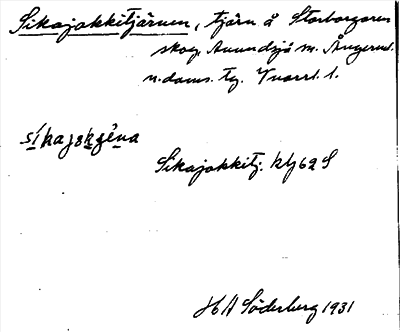 Sikajokkitjärnen, tjärn å Storborgaren
skog, Anundsjö sn. Ångerml.
n. doms. tg. Kvarrl. 1.
síkajɔkʂɛ̀na
Sikajokkitj. klj 62 S
H A Söderberg 1931